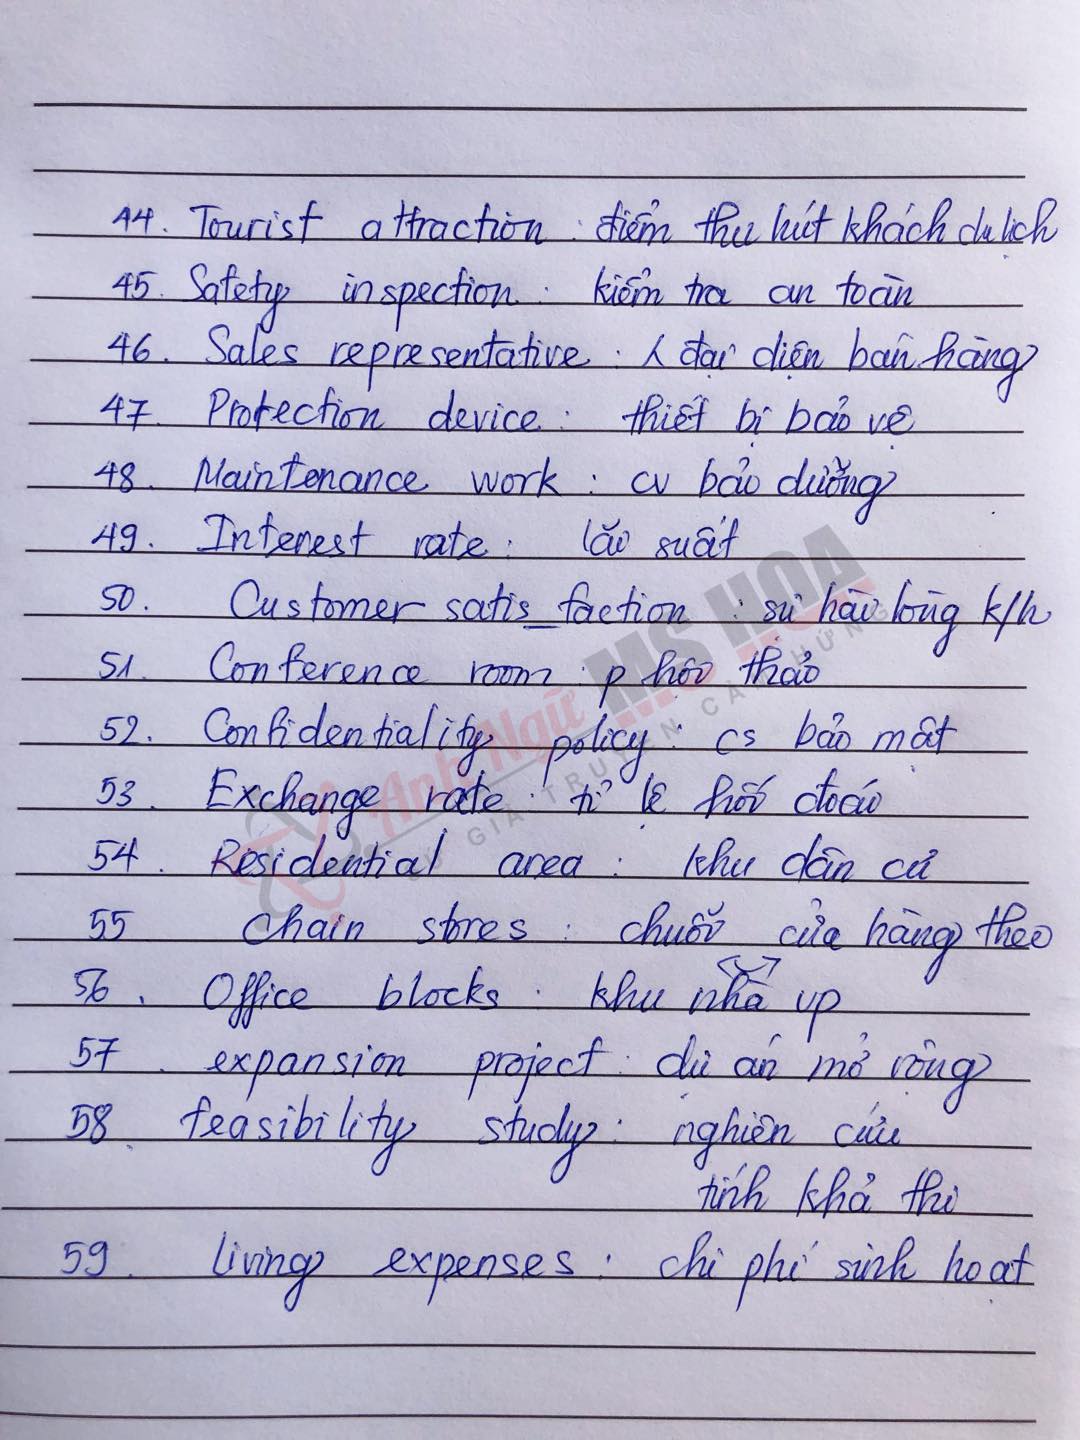 44. Tourist attraction : điểm thu hút khách du lịch
45. Safety inspection : kiểm tra an toàn
46. Sales representative : đại diện bán hàng
47. Protection device : thiết bị bảo vệ
48. Maintenance work : cv bảo dưỡng
49. Interest rate : lãi suất
50. Customer satis_faction : sự hài lòng k/h
51. Conference room : p hội thảo
52. Confidentiality policy : cs bảo mật
53. Exchange rate : tỉ lệ hối đoái
54. Residential area : khu dân cư
55 chain stores : chuỗi cửa hàng theo
56. Office blocks : khu nhà vp
57. expansion project : dự án mở rộng
58 feasibility study : nghiên cứu
tính khả thi
59. living expenses : chi phí sinh hoạt
Anh Ngữ MS HOA
SỨ GIẢ TRUYỀN CẢM HỨNG